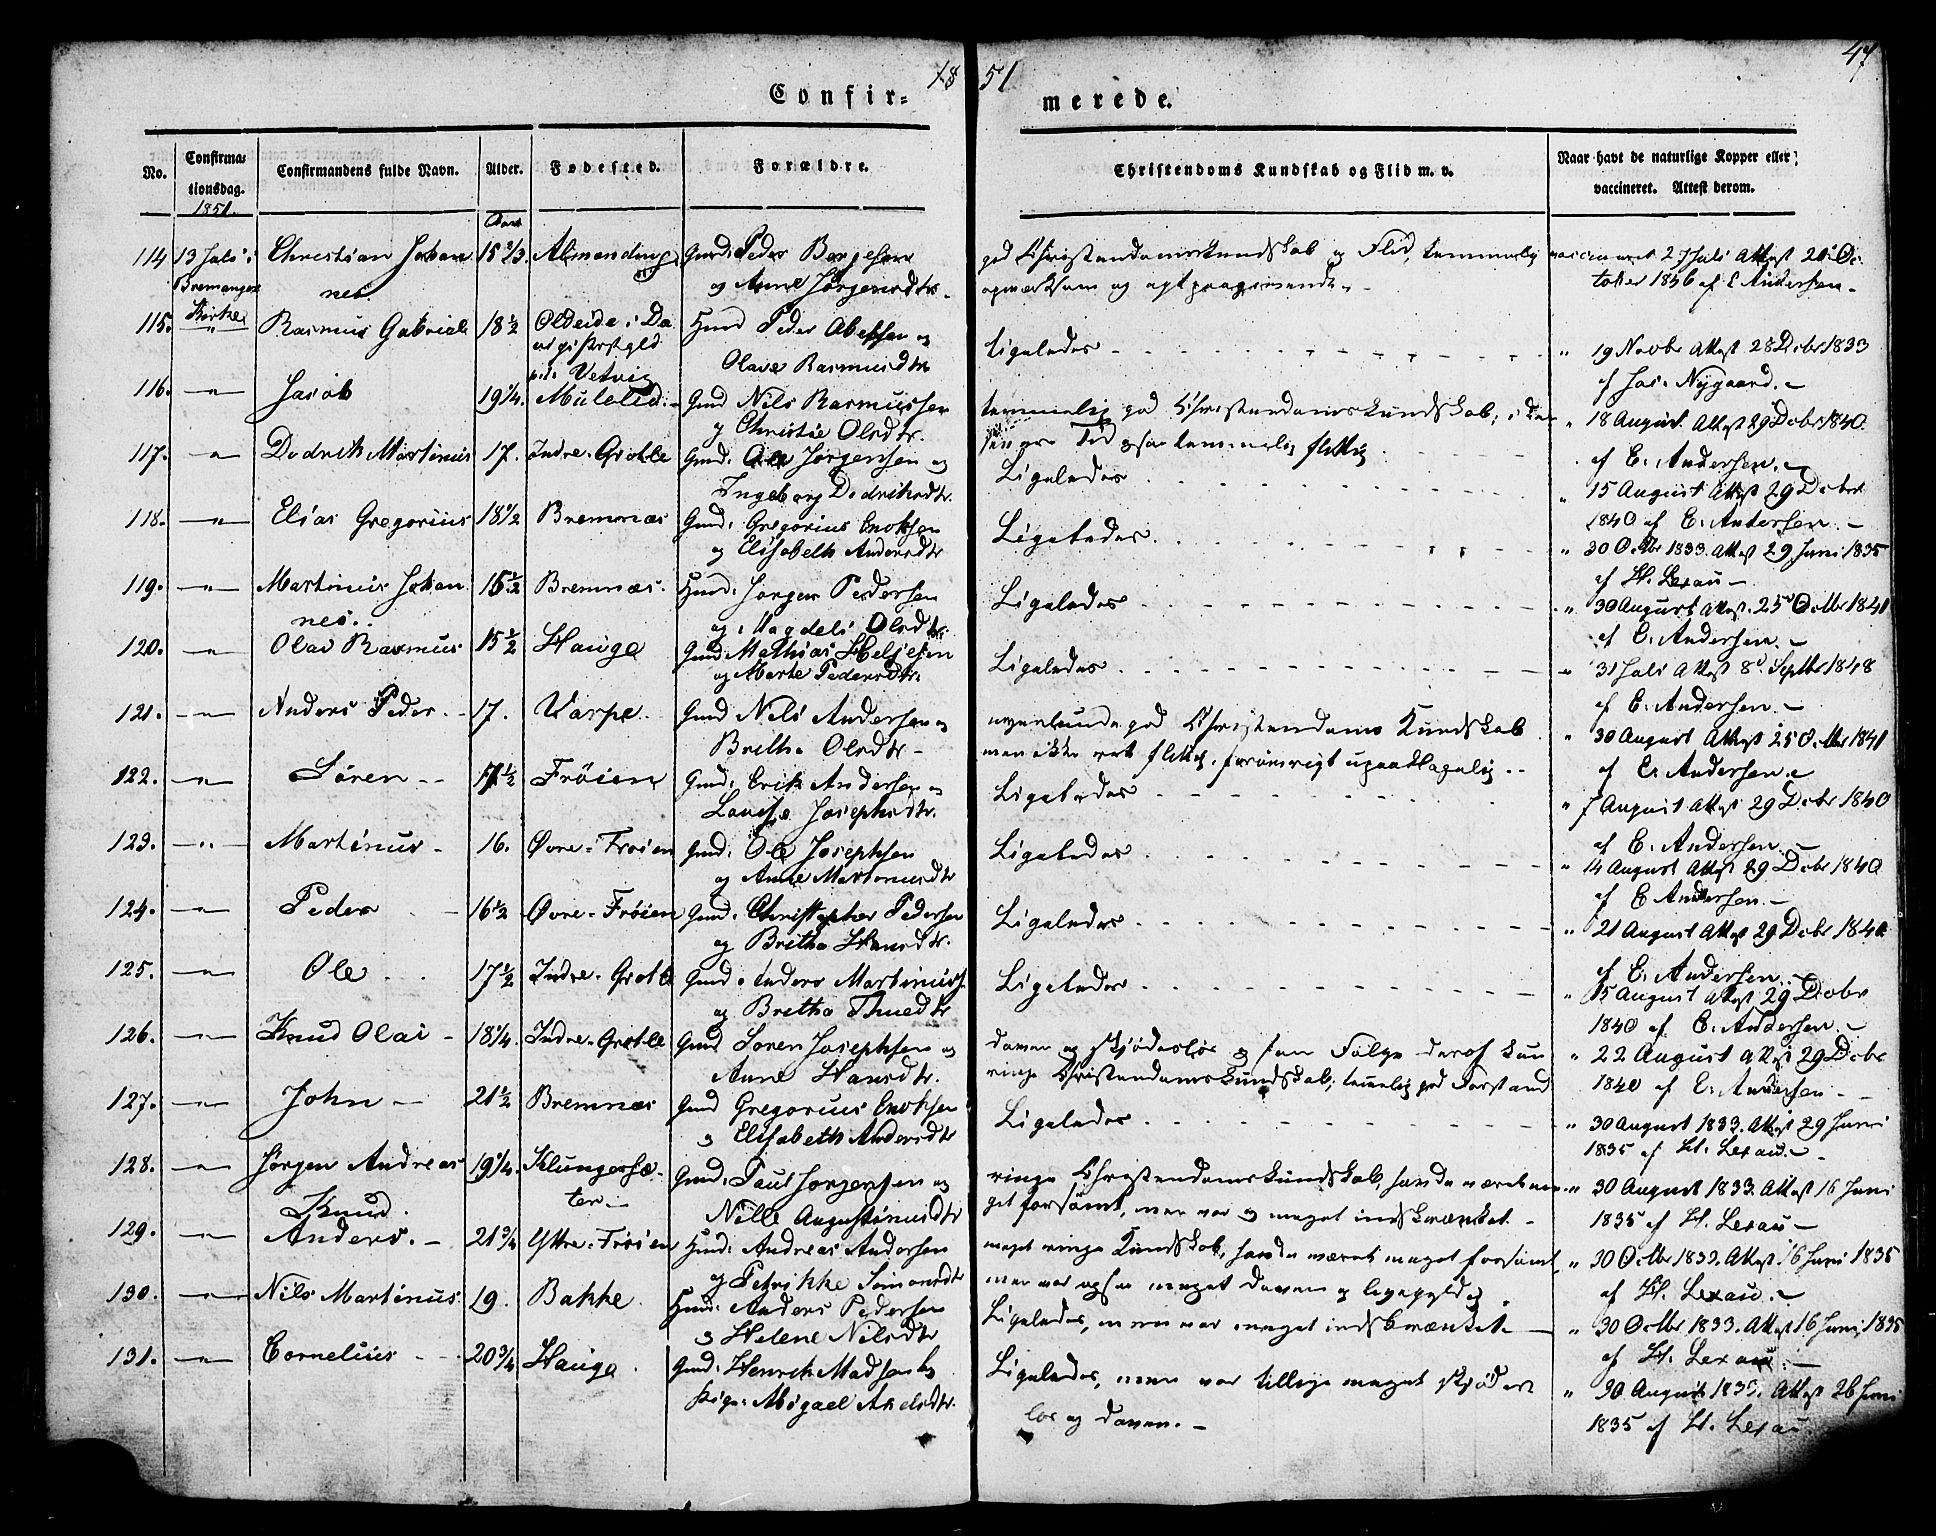 18 51
47
Confir= merede.
No.
Confirma=
tionsdag.
1851.
Confirmandens fulde Navn.
Alder.
Aar
Fødested.
Forældre.
Christendoms Kundskab og Flid m. v.
Naar havt de naturlige Kopper eller
vaccineret. Attest derom.
114 13 Juli i Christian Johan 15 2/3 Almending Gmd: Peder Børgesen god Christendomskundskab og Flid, temmelig vaccineret 27 Juli Attest 21 Oc:
Bremanger nes. og Anne Jørgensdtr. opmærksom og agtpaagivende. tober 1836 af E Andersen.
Kirke
115. " Rasmus Gabriel 18½ Oldeide i Da Hmd Peder Abelsen og Ligeledes " 19 Novbr Attest 28 Decbr 1833
vigs Prstgld Olave Rasmusdtr af Jac. Nygaard.
Vetvig
116. " Jacob 19¼. Mulelid. Gmd Nils Rasmussen temmelig god Christendomskundskab, i den " 18 August Attest 29 Decbr 1840
og Christie Olsdtr. senere Tid ogsaa temmelig flittig af E. Andersen.
117. " Dedrik Martinus 17. Indre-Grotle Gmd: Ole Jørgensen og Ligeledes " 15 August Attest 29 Decbr
Ingeborg Dedriksdtr. 1840 af E. Andersen.
118. " Elias Gregorius 18½ Bremnæs Gmd: Gregorius Enoksen Ligeledes " 30 Octbr 1833. Attest 29 Juni 1835
og Elisabeth Andersdtr af H. Lexau
119. " Martinus Johan 15½ Bremnæs. Hmd: Jørgen Pedersen Ligeledes " 30 August Attest 25 Octbr 1841
nes. og Magdeli Olsdtr af E. Andersen.
120. " Olai Rasmus 15½ Hauge Gmd: Mathias Heljesen Ligeledes " 31 Juli Attest 8d Septbr 1848
og Marte Pedersdtr. af E. Andersen.
121. " Anders Peder 17. Varpe Gmd Nils Andersen og nogenlunde god Christendoms Kundskab " 30 August Attest 25 Octbr 1841
Brithe Olsdtr men ikke ret flittig, forøvrigt upaaklagelig. af E. Andersen.
122. " Søren 17½ Frøien Gmd: Erik Andersen og Ligeledes " 7 August Attest 29 Decbr 1840
Louise Josephsdtr. af E. Andersen.
123. " Martinus 16. Øvre-Frøien Gmd: Ole Josephsen Ligeledes " 14 August Attest 29 Decbr 1840
og Anne Martinusdtr af E Andersen.
124. " Peder 16½ Øvre-Frøien Gmd: Christopher Pedersen Ligeledes " 21 August Attest 29 Decbr 1840
og Britha Hansdtr. af E. Andersen.
125. " Ole 17½ Indre-Grotle Gmd: Anders Martinuss. Ligeledes " 15 August Attest 29 Decbr
og Britha Thuedtr 1840 af E. Andersen.
126. " Knud Olai 18¼. Indre-Grotle Gmd Søren Josephsen og Doven og skjødesløs og som Følge deraf kun " 22 August Attest 29 Decbr
Anne Hansdtr. ringe Christendomskundskab; temmelig god Forstand 1840 af E. Andersen
127. " John 21½ Bremnæs Gmd Gregorius Enoksen Ligeledes " 30 August 1833. Attest 29 Juni
og Elisabeth Andersdtr 1835 af H. Lexau.
128. " Jørgen Andreas 19¼. Klungersæ- Gmd: Paul Jørgensen og ringe Christendomskundskab, havde været me- " 30 August 1833. Attest 16 Juni
Knud. ter. Nille Augustinusdtr get forsømt, men var og meget indskrænket. 1835 af H. Lexau
129. " Anders. 21¾ Yttre-Frøien Hmd: Andreas Andersen meget ringe Kundskab, havde været meget forsømt " 30 Octbr 1833. Attest 16 Juni 1835
og Petrikke Simonsdtr men var ogsaa meget doven og ligegyldig. af H. Lexau.
130. " Nils Martinus 19. Bakke Hmd: Anders Pedersen Ligeledes, men var meget indskrænket " 30 Octbr 1833. Attest 16 Juni 1835
og Helene Nilsdtr af H. Lexau.
131. " Cornelius 20¾ Hauge Gmd: Henrik Madsen og Ligeledes, men var tillige meget skjødes " 30 August 1833. Attest 26 Juni
Pige: Migael Axelsdtr. løs og doven. 1835 af H. Lexau